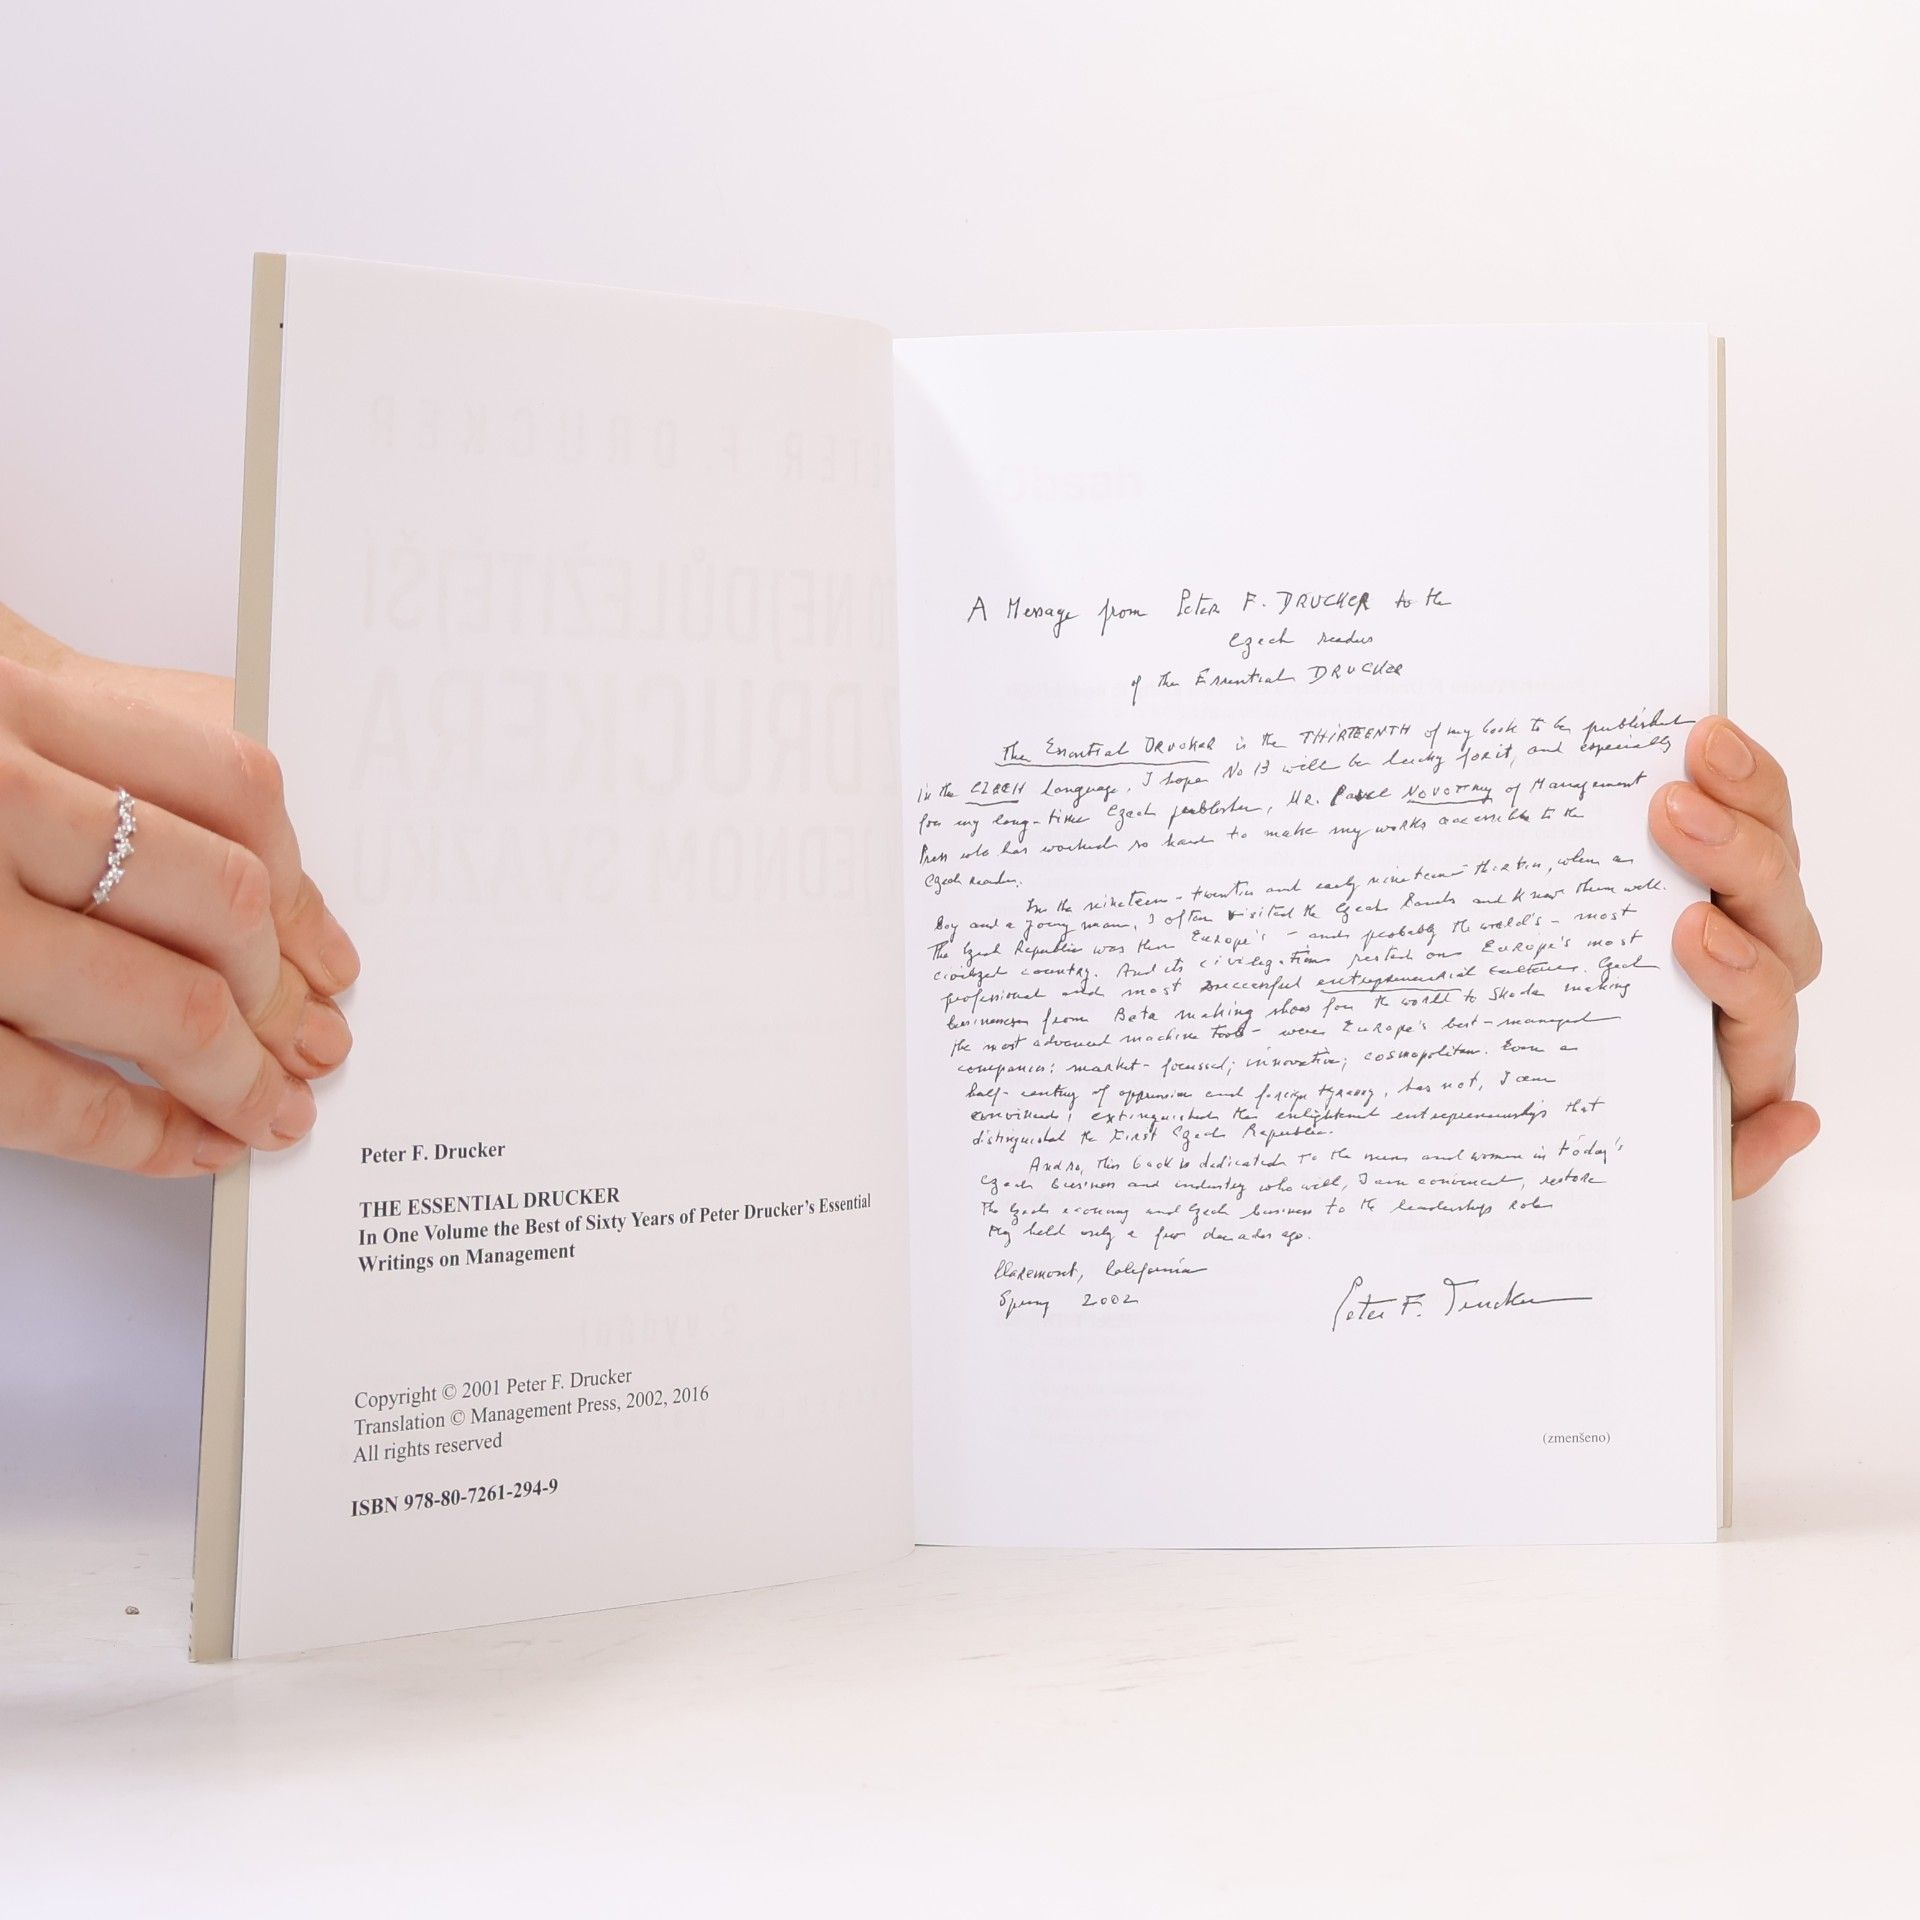 Peter F. Drucker
THE ESSENTIAL DRUCKER
In One Volume the Best of Sixty Years of Peter Drucker's Essential
Writings on Management
Copyright © 2001 Peter F. Drucker
Translation © Management Press, 2002, 2016
All rights reserved
ISBN 978-80-7261-294-9
A Message from Peter F. DRUCKER to the
Czech readers
of the Essential DRUCKER
The Essential DRUCKER is the THIRTEENTH of my book to be published
in the CZECH language. I hope No 13 will be lucky for it, and especially
for my long-time Czech publisher, MR. Pavel NOVOTNY of Management
Press who has worked so hard to make my works accessible to the
Czech reader.
In the nineteen-twenties and early nineteen thirties, when a
Boy and a young man, I often visited the Czech Lands and knew them well.
The Czech Republic was then Europe's - and probably the world's - most
civilized country. And its civilization rested on Europe's most
professional and most successful entrepreneurial culture. Czech
businesses from Bata making shoes for the world to Skoda making
the most advanced machine tools - were Europe's best-managed
companies: market-focussed; innovative; cosmopolitan. Even a
half-century of oppression and foreign tyranny, has not, I am
convinced, extinguished the enlightened entrepreneurship that
distinguished the First Czech Republic.
And so, this book is dedicated to the men and women in today's
Czech business and industry who will, I am convinced, restore
the Czech economy and Czech business to the leadership role
they held only a few decades ago.
Claremont, California
Spring 2002
Peter F. Drucker
(zmenšeno)